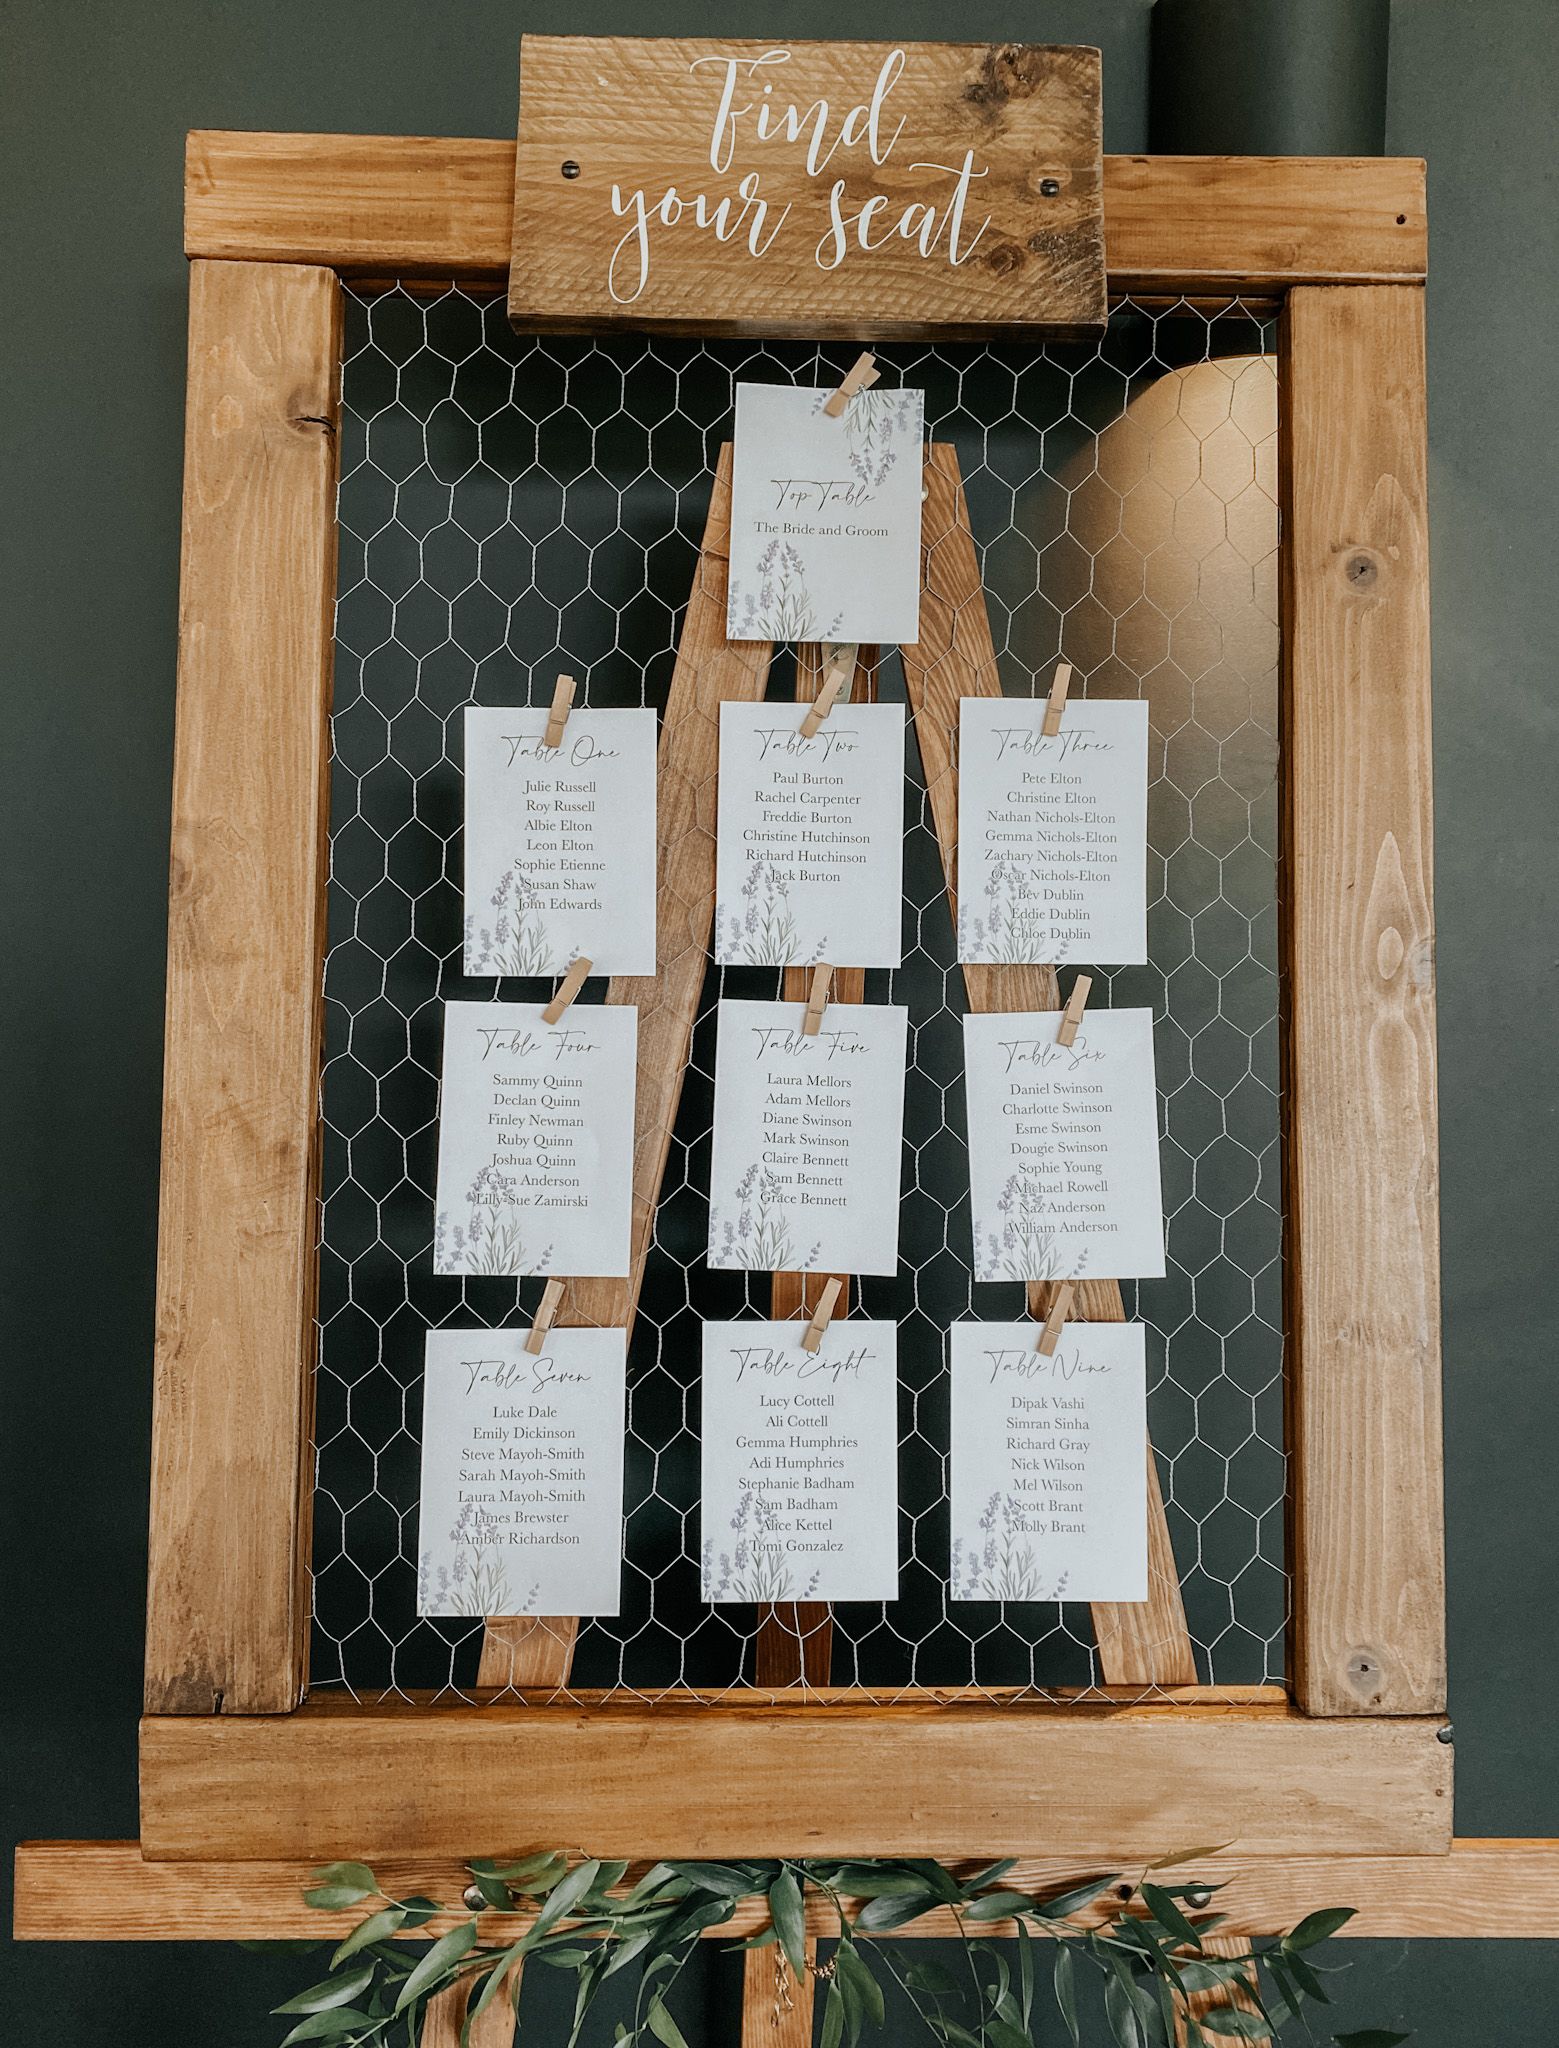 Find
your seat
Top Table
The Bride and Groom
Table One
Julie Russell
Roy Russell
Albie Elton
Leon Elton
Sophie Etienne
Susan Shaw
John Edwards
Table Two
Paul Burton
Rachel Carpenter
Freddie Burton
Christine Hutchinson
Richard Hutchinson
Jack Burton
Table Three
Pete Elton
Christine Elton
Nathan Nichols-Elton
Gemma Nichols-Elton
Zachary Nichols-Elton
Oscar Nichols-Elton
Bev Dublin
Eddie Dublin
Chloe Dublin
Table Four
Sammy Quinn
Declan Quinn
Finley Newman
Ruby Quinn
Joshua Quinn
Cara Anderson
Lilly-Sue Zamirski
Table Five
Laura Mellors
Adam Mellors
Diane Swinson
Mark Swinson
Claire Bennett
Sam Bennett
Grace Bennett
Table Six
Daniel Swinson
Charlotte Swinson
Esme Swinson
Dougie Swinson
Sophie Young
Michael Rowell
Naz Anderson
William Anderson
Table Seven
Luke Dale
Emily Dickinson
Steve Mayoh-Smith
Sarah Mayoh-Smith
Laura Mayoh-Smith
James Brewster
Amber Richardson
Table Eight
Lucy Cottell
Ali Cottell
Gemma Humphries
Adi Humphries
Stephanie Badham
Sam Badham
Alice Kettel
Tomi Gonzalez
Table Nine
Dipak Vashi
Simran Sinha
Richard Gray
Nick Wilson
Mel Wilson
Scott Brant
Molly Brant